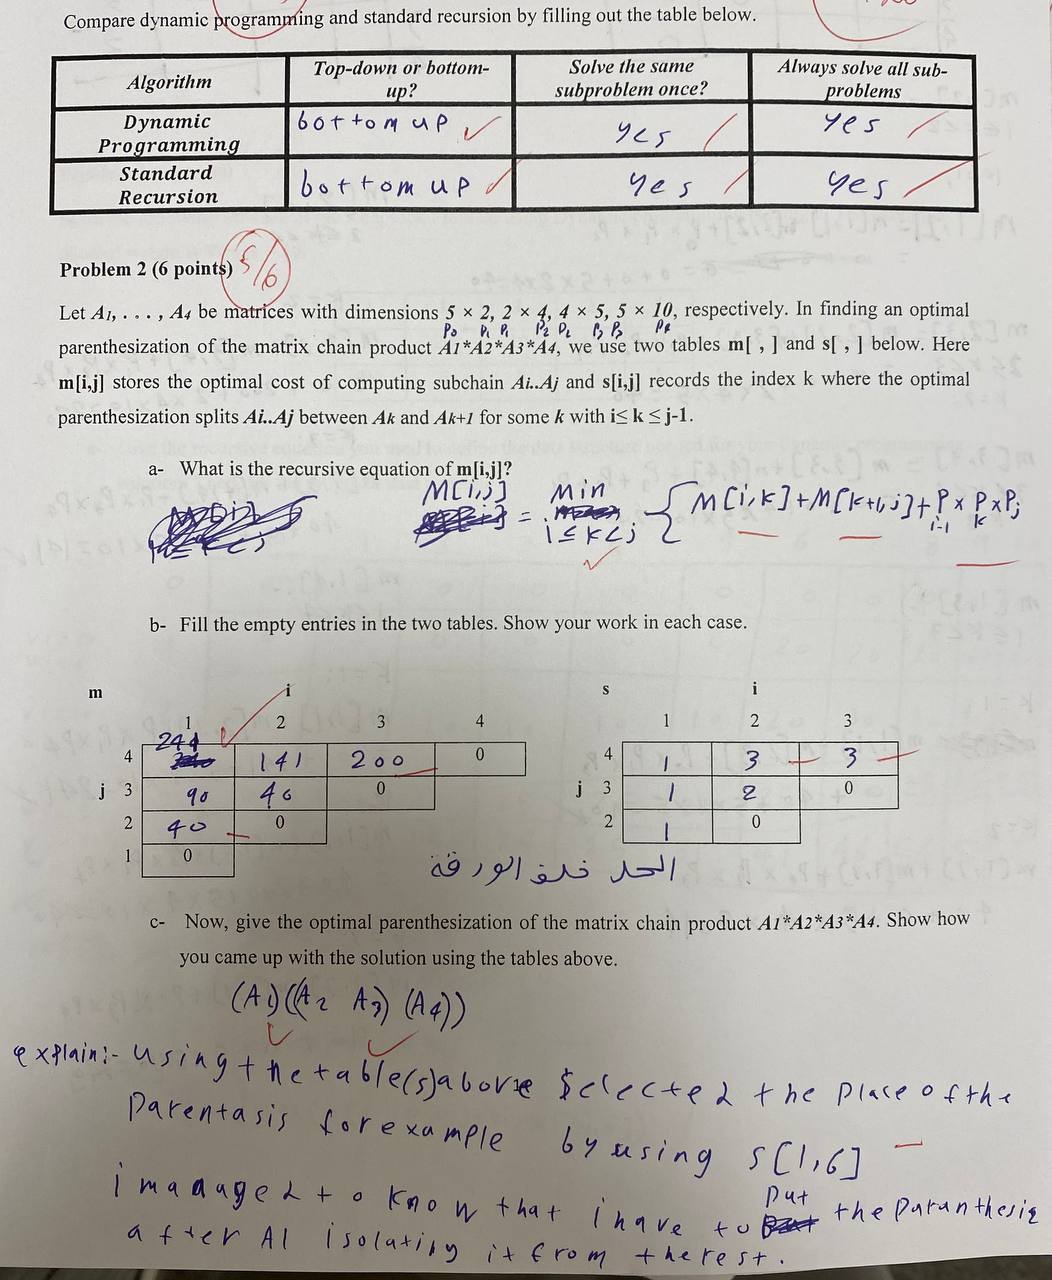 Compare dynamic programming and standard recursion by filling out the table below.
Algorithm Top-down or bottom-up? Solve the same subproblem once? Always solve all sub-problems
Dynamic Programming bottom up yes yes
Standard Recursion bottom up yes yes
Problem 2 (6 points) 5/6
Let A1, . . . , A4 be matrices with dimensions 5 × 2, 2 × 4, 4 × 5, 5 × 10, respectively. In finding an optimal
P0 P1 P1 P2 P2 P3 P3 P4
parenthesization of the matrix chain product A1*A2*A3*A4, we use two tables m[ , ] and s[ , ] below. Here
m[i,j] stores the optimal cost of computing subchain Ai..Aj and s[i,j] records the index k where the optimal
parenthesization splits Ai..Aj between Ak and Ak+1 for some k with i≤ k ≤ j-1.
a- What is the recursive equation of m[i,j]?
M[i,j] = Min i≤k<j { M[i,k]+M[k+1,j]+P i-1 x P k x Pj
b- Fill the empty entries in the two tables. Show your work in each case.
m i s i
1 2 3 4 1 2 3
244
4 141 200 0 4 1 3 3
j 3 90 40 0 j 3 1 2 0
2 40 0 2 1 0
1 0
الحل خلف الورقة
c- Now, give the optimal parenthesization of the matrix chain product A1*A2*A3*A4. Show how
you came up with the solution using the tables above.
(A1)((A2 A3) (A4))
explain:- using the table(s) above selected the place of the
Parentasis for example by using s[1,6]
i managed to know that i have to put the paranthesis
after A1 isolating it from the rest.